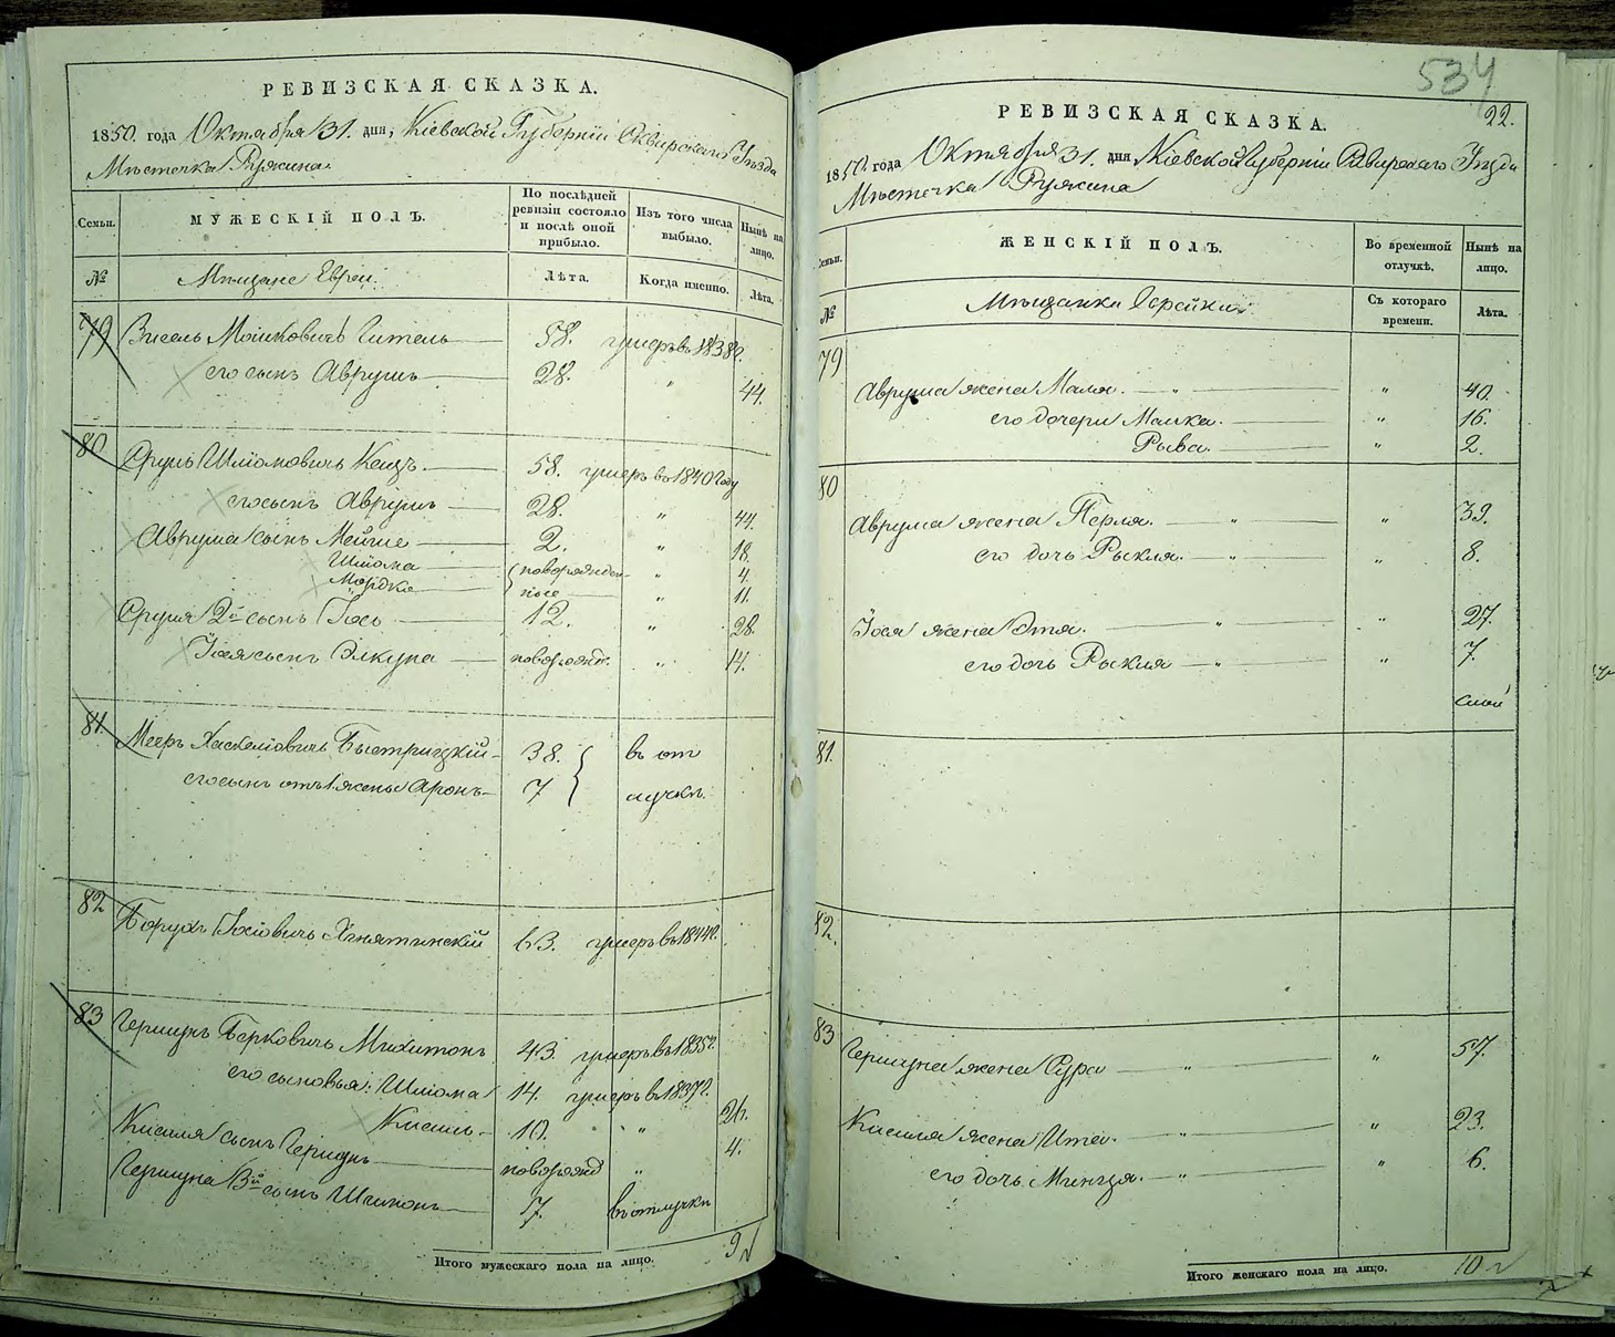 РЕВИЗСКАЯ СКАЗКА.
1850. года Октября 31. дня, Кіевской Губерніи Сквирскаго Уѣзда
Мѣстечка Ружина.
Семьи.
МУЖЕСКІЙ ПОЛЪ.
По послѣдней ревизіи состояло и послѣ оной прибыло.
Изъ того числа выбыло.
Нынѣ на лицо.
№
Мѣщане Евреи.
Лѣта.
Когда именно.
Лѣта.
79 Зисель Мошковичъ Гитель 58. умеръ въ 1838г.
его сынъ Аврумъ 28. " 44.
80 Сруль Шліомовичъ Кацъ. 58. умеръ въ 1840 году
его сынъ Аврумъ 28. " 44.
Аврума сынъ 2. " 18.
Шліома новорожден- " 4.
Мордко ные " 11.
Сруля 2й сынъ Іось 12. " 28.
Іося сынъ Элкуна новорожд. " 14.
81. Мееръ Хаскеліовичъ Быстрицкій 38. въ от
его сынъ отъ 1. жены Аронъ 7 лучкѣ.
82 Борухъ Іосіовичъ 63. умеръ въ 1844г.
83 Гершунъ Берковичъ 43. умеръ въ 1835г.
его сыновья: Шліома 14. умеръ въ 1837г.
Кисиль 10. " 26.
Кисиля сынъ Гершунъ новорожд " 4.
Гершуна 3й сынъ Шимонъ 7. въ отлучкѣ
Итого мужескаго пола на лицо. 9
534
22.
РЕВИЗСКАЯ СКАЗКА.
1850. года Октября 31. дня Кіевской Губерніи Сквирскаго Уѣзда
Мѣстечка Ружина
Семьи.
ЖЕНСКІЙ ПОЛЪ.
Во временной отлучкѣ.
Нынѣ на лицо.
№
Мѣщанки Еврейки.
Съ котораго времени.
Лѣта.
79
Аврума жена Маля. " " 40.
его дочери Малка. " 16.
Рыва. " 2.
80
Аврума жена Перля. " " 39.
его дочь Рыкля. " " 8.
Іося жена Этя. " " 27.
его дочь Рыкля " " 7.
81.
82.
83 Гершуна жена Сура " " 57.
Кисиля жена Ита. " " 23.
его дочь Минця. " " 6.
Итого женскаго пола на лицо. 10